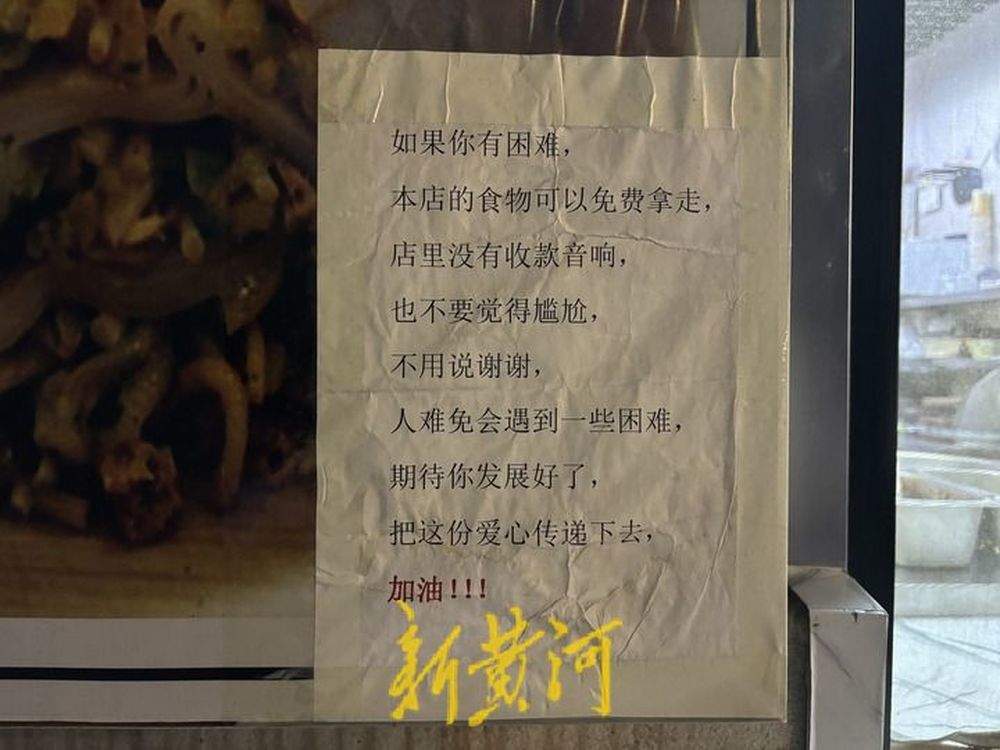 如果你有困难，
本店的食物可以免费拿走，
店里没有收款音响，
也不要觉得尴尬，
不用说谢谢，
人难免会遇到一些困难，
期待你发展好了，
把这份爱心传递下去，
加油!!!
新黄河